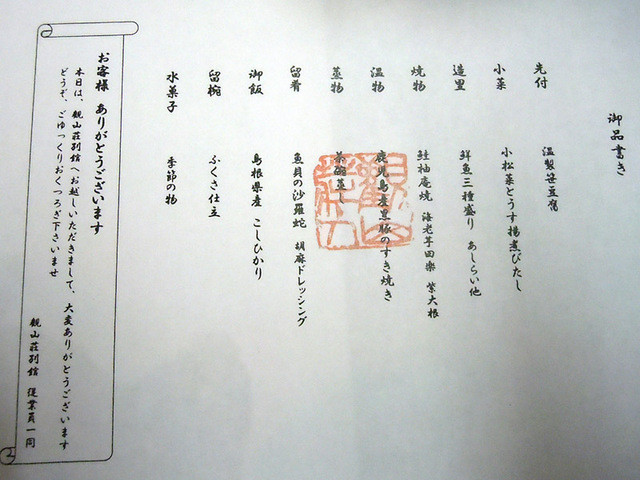 御品書き
先付 温製笹豆腐
小菜 小松菜とうす揚煮びたし
造里 鮮魚三種盛り あしらい他
焼物 鮭柚庵焼 海老芋田楽 紫大根
温物 鹿児島産黒豚のすき焼き
蒸物 茶碗蒸し
留肴 魚貝の沙羅蛇 胡麻ドレッシング
御飯 島根県産 こしひかり
留椀 ふくさ仕立
水菓子 季節の物
お客様 ありがとうございます
本日は、観山荘別館へお越しいただきまして、大変ありがとうございます
どうぞ、ごゆっくりおくつろぎ下さいませ
観山荘別館 従業員一同